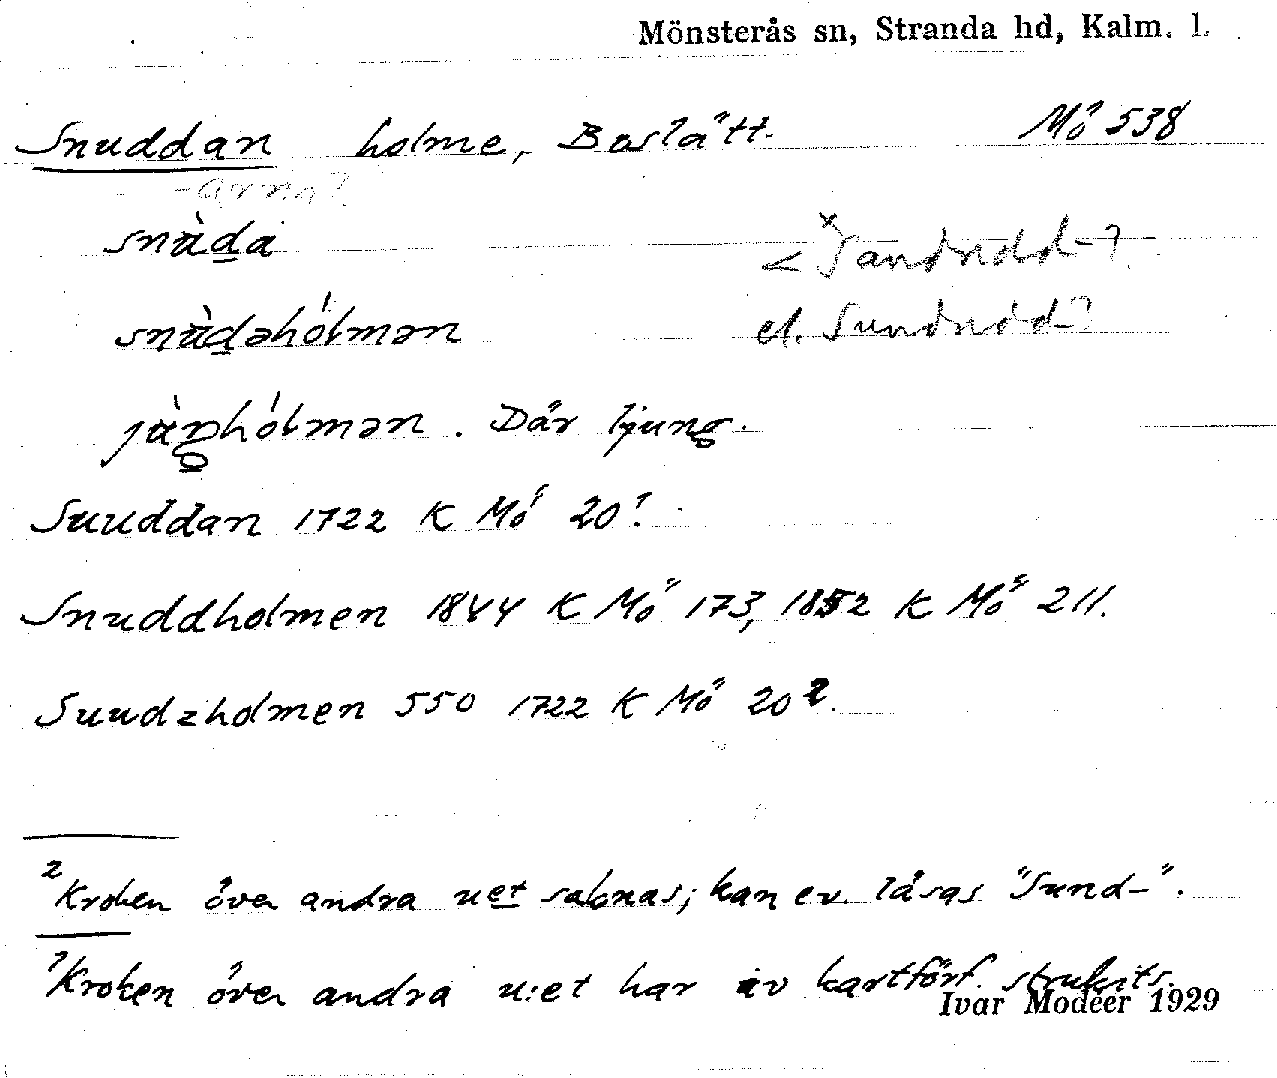 Mönsterås sn, Stranda hd, Kalm. l.
Snuddan holme, Baslätt. Mö 538
-arna?
snùda
< ˣSandudd-?
snùdəhólmən el. Sundudd-?
jùŋhólmən. Där ljung.
Suuddan 1722 K Mö 20¹.
Snuddholmen 1844 K Mö 173, 1852 K Mö 211.
Suudzholmen 550 1722 K Mö 20².
²Kroken över andra uet saknas; kan ev. läsas "Sund-".
¹Kroken över andra u:et har av kartförf. strukits.
Ivar Modéer 1929